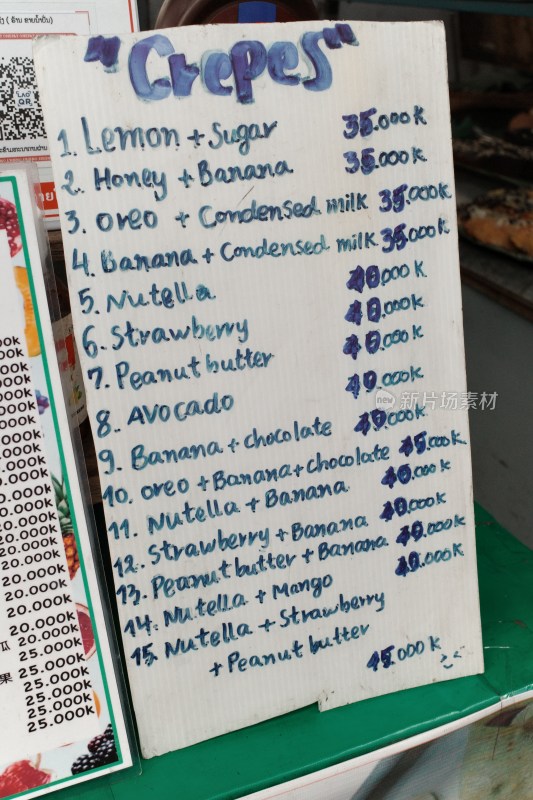 "Crepes"
1. Lemon + Sugar 35.000K
2. Honey + Banana 35.000K
3. oreo + Condensed milk 35.000K
4. Banana + Condensed milk 35.000K
5. Nutella 40.000K
6. Strawberry 40.000K
7. Peanut butter 40.000K
8. AVOCADO 40.000K
9. Banana + chocolate 40.000K
10. oreo + Banana + chocolate 45.000K
11. Nutella + Banana 40.000K
12. Strawberry + Banana 40.000K
13. Peanut butter + Banana 40.000K
14. Nutella + Mango 40.000K
15. Nutella + Strawberry
+ Peanut butter 45.000K
20.000K
20.000K
20.000K
20.000K
20.000K
瓜 20.000K
25.000K
果 25.000K
25.000K
25.000K
25.000K
新片场素材